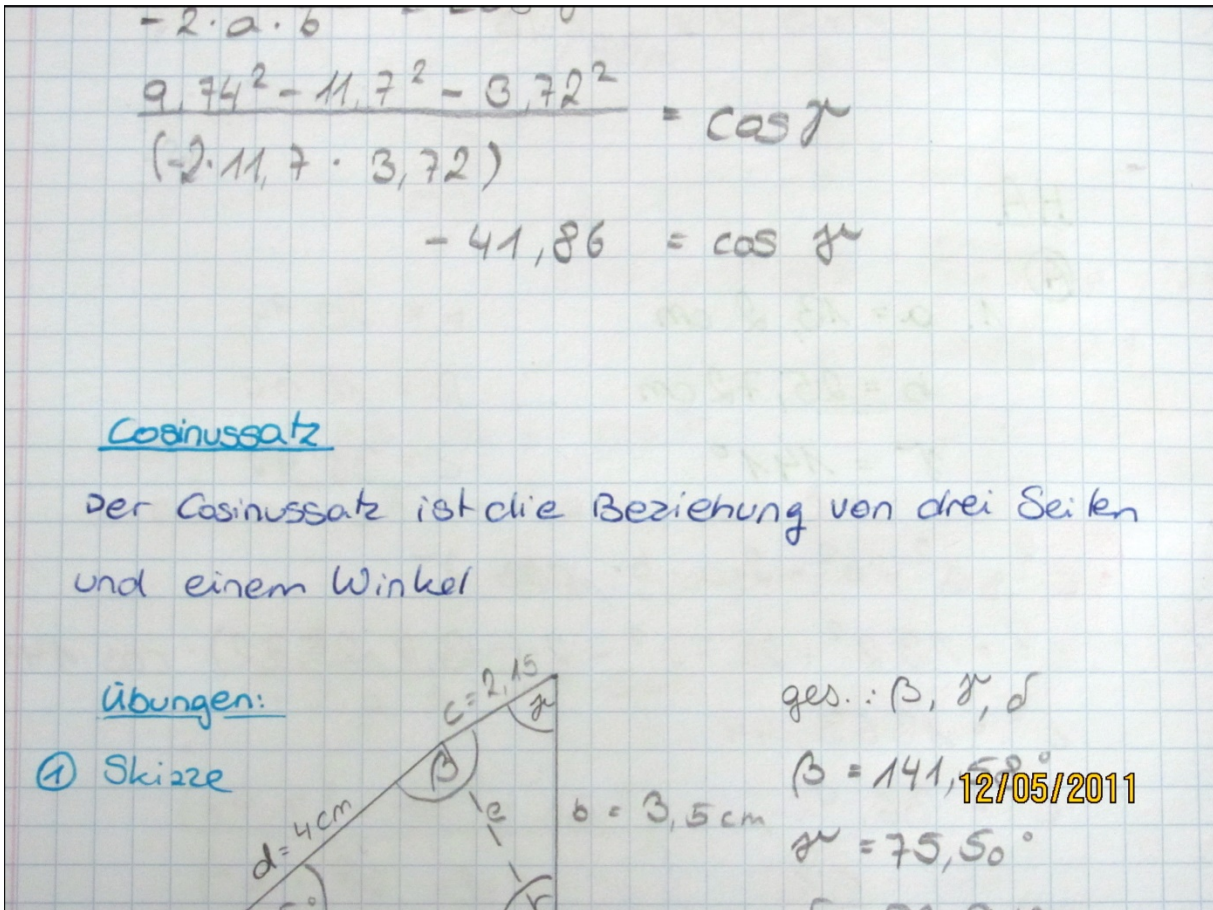 -2·a·b
9,74² - 11,7² - 3,72² = cos γ
(-2·11,7 · 3,72)
-41,86 = cos γ
Cosinussatz
Der Cosinussatz ist die Beziehung von drei Seiten
und einem Winkel
Übungen:
① Skizze
c = 2,15
γ
β
d = 4cm
e
b = 3,5 cm
ges.: β, γ, δ
β = 141,58°
12/05/2011
γ = 75,50°